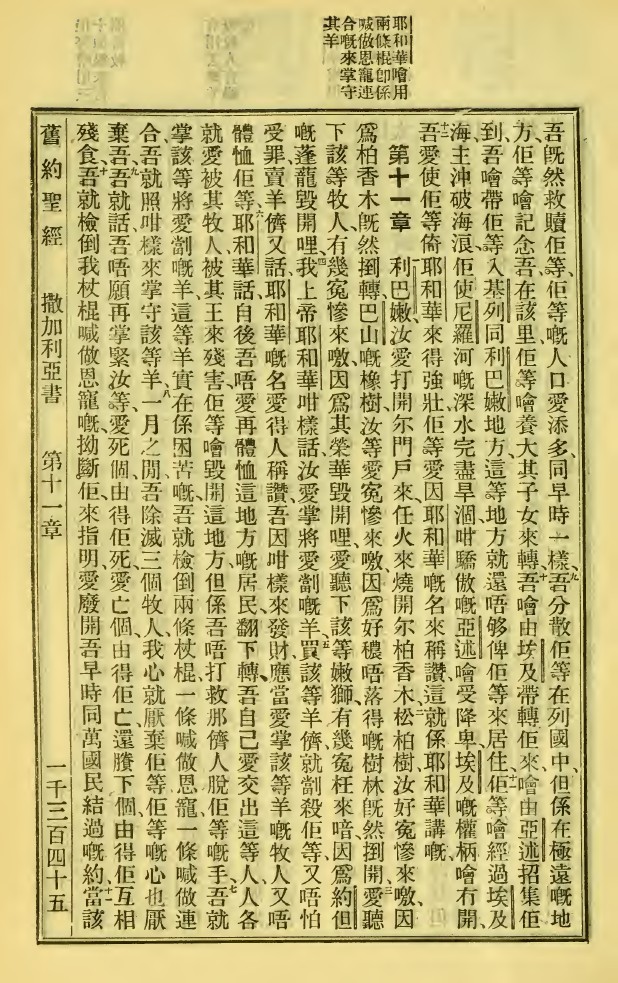 耶和華噲用
兩條棍卽係
喊做恩寵連
合嘅來掌守
其羊
吾旣然救贖佢等、佢等嘅人口愛添多、同早時一樣、九吾分散佢等在列國中、但係在極遠嘅地
方、佢等噲記念吾、在該里佢等噲養大其子女來轉、十吾噲由埃及帶轉佢來、噲由亞述招集佢
到、吾噲帶佢等入基列同利巴嫩地方、這等地方就還唔够俾佢等來居住、十一佢等噲經過埃及
海、主沖破海浪、佢使尼羅河嘅深水完盡旱涸、咁驕傲嘅亞述噲受降卑、埃及嘅權柄噲冇開、
十二吾愛使佢等倚耶和華來得強壯、佢等愛因耶和華嘅名來稱讚、這就係耶和華講嘅、
第十一章 利巴嫩汝愛打開尔門戶來、任火來燒開尔柏香木、二松柏樹汝好寃慘來噭、因
爲柏香木旣然捯轉、巴山嘅橡樹、汝等愛寃慘來噭、因爲好穠唔落得嘅樹林旣然捯開、三愛聽
下該等牧人有幾寃慘來噭、因爲其榮華毀開哩、愛聽下該等嫩獅、有幾寃枉來喑、因爲約但
嘅蓬蘢毀開哩、四我上帝耶和華咁樣話、汝愛掌將愛劏嘅羊、五買該等羊儕就劏殺佢等、又唔怕
受罪、賣羊儕又話、耶和華嘅名愛得人稱讚、吾因咁樣來發財、應當愛掌該等羊嘅牧人、又唔
體恤佢等、六耶和華話、自後吾唔愛再體恤這地方嘅居民、翻下轉、吾自己愛交出這等人、人各
就愛被其牧人、被其王來殘害、佢等噲毀開這地方、但係吾唔打救那儕人脫佢等嘅手、七吾就
掌該等將愛劏嘅羊、這等羊實在係困苦嘅、吾就檢倒兩條杖棍、一條喊做恩寵、一條喊做連
合、吾就照咁樣來掌守該等羊、八一月之間、吾除滅三個牧人、我心就厭棄佢等、佢等嘅心也厭
棄吾、九吾就話、吾唔願再掌緊汝等、愛死個、由得佢死、愛亡個、由得佢亡、還賸下個、由得佢互相
殘食、十吾就檢倒我杖棍喊做恩寵嘅、拗斷佢、來指明、愛廢開吾早時同萬國民結過嘅約、十一當該
舊約聖經 撒加利亞書 第十一章 一千三百四十五